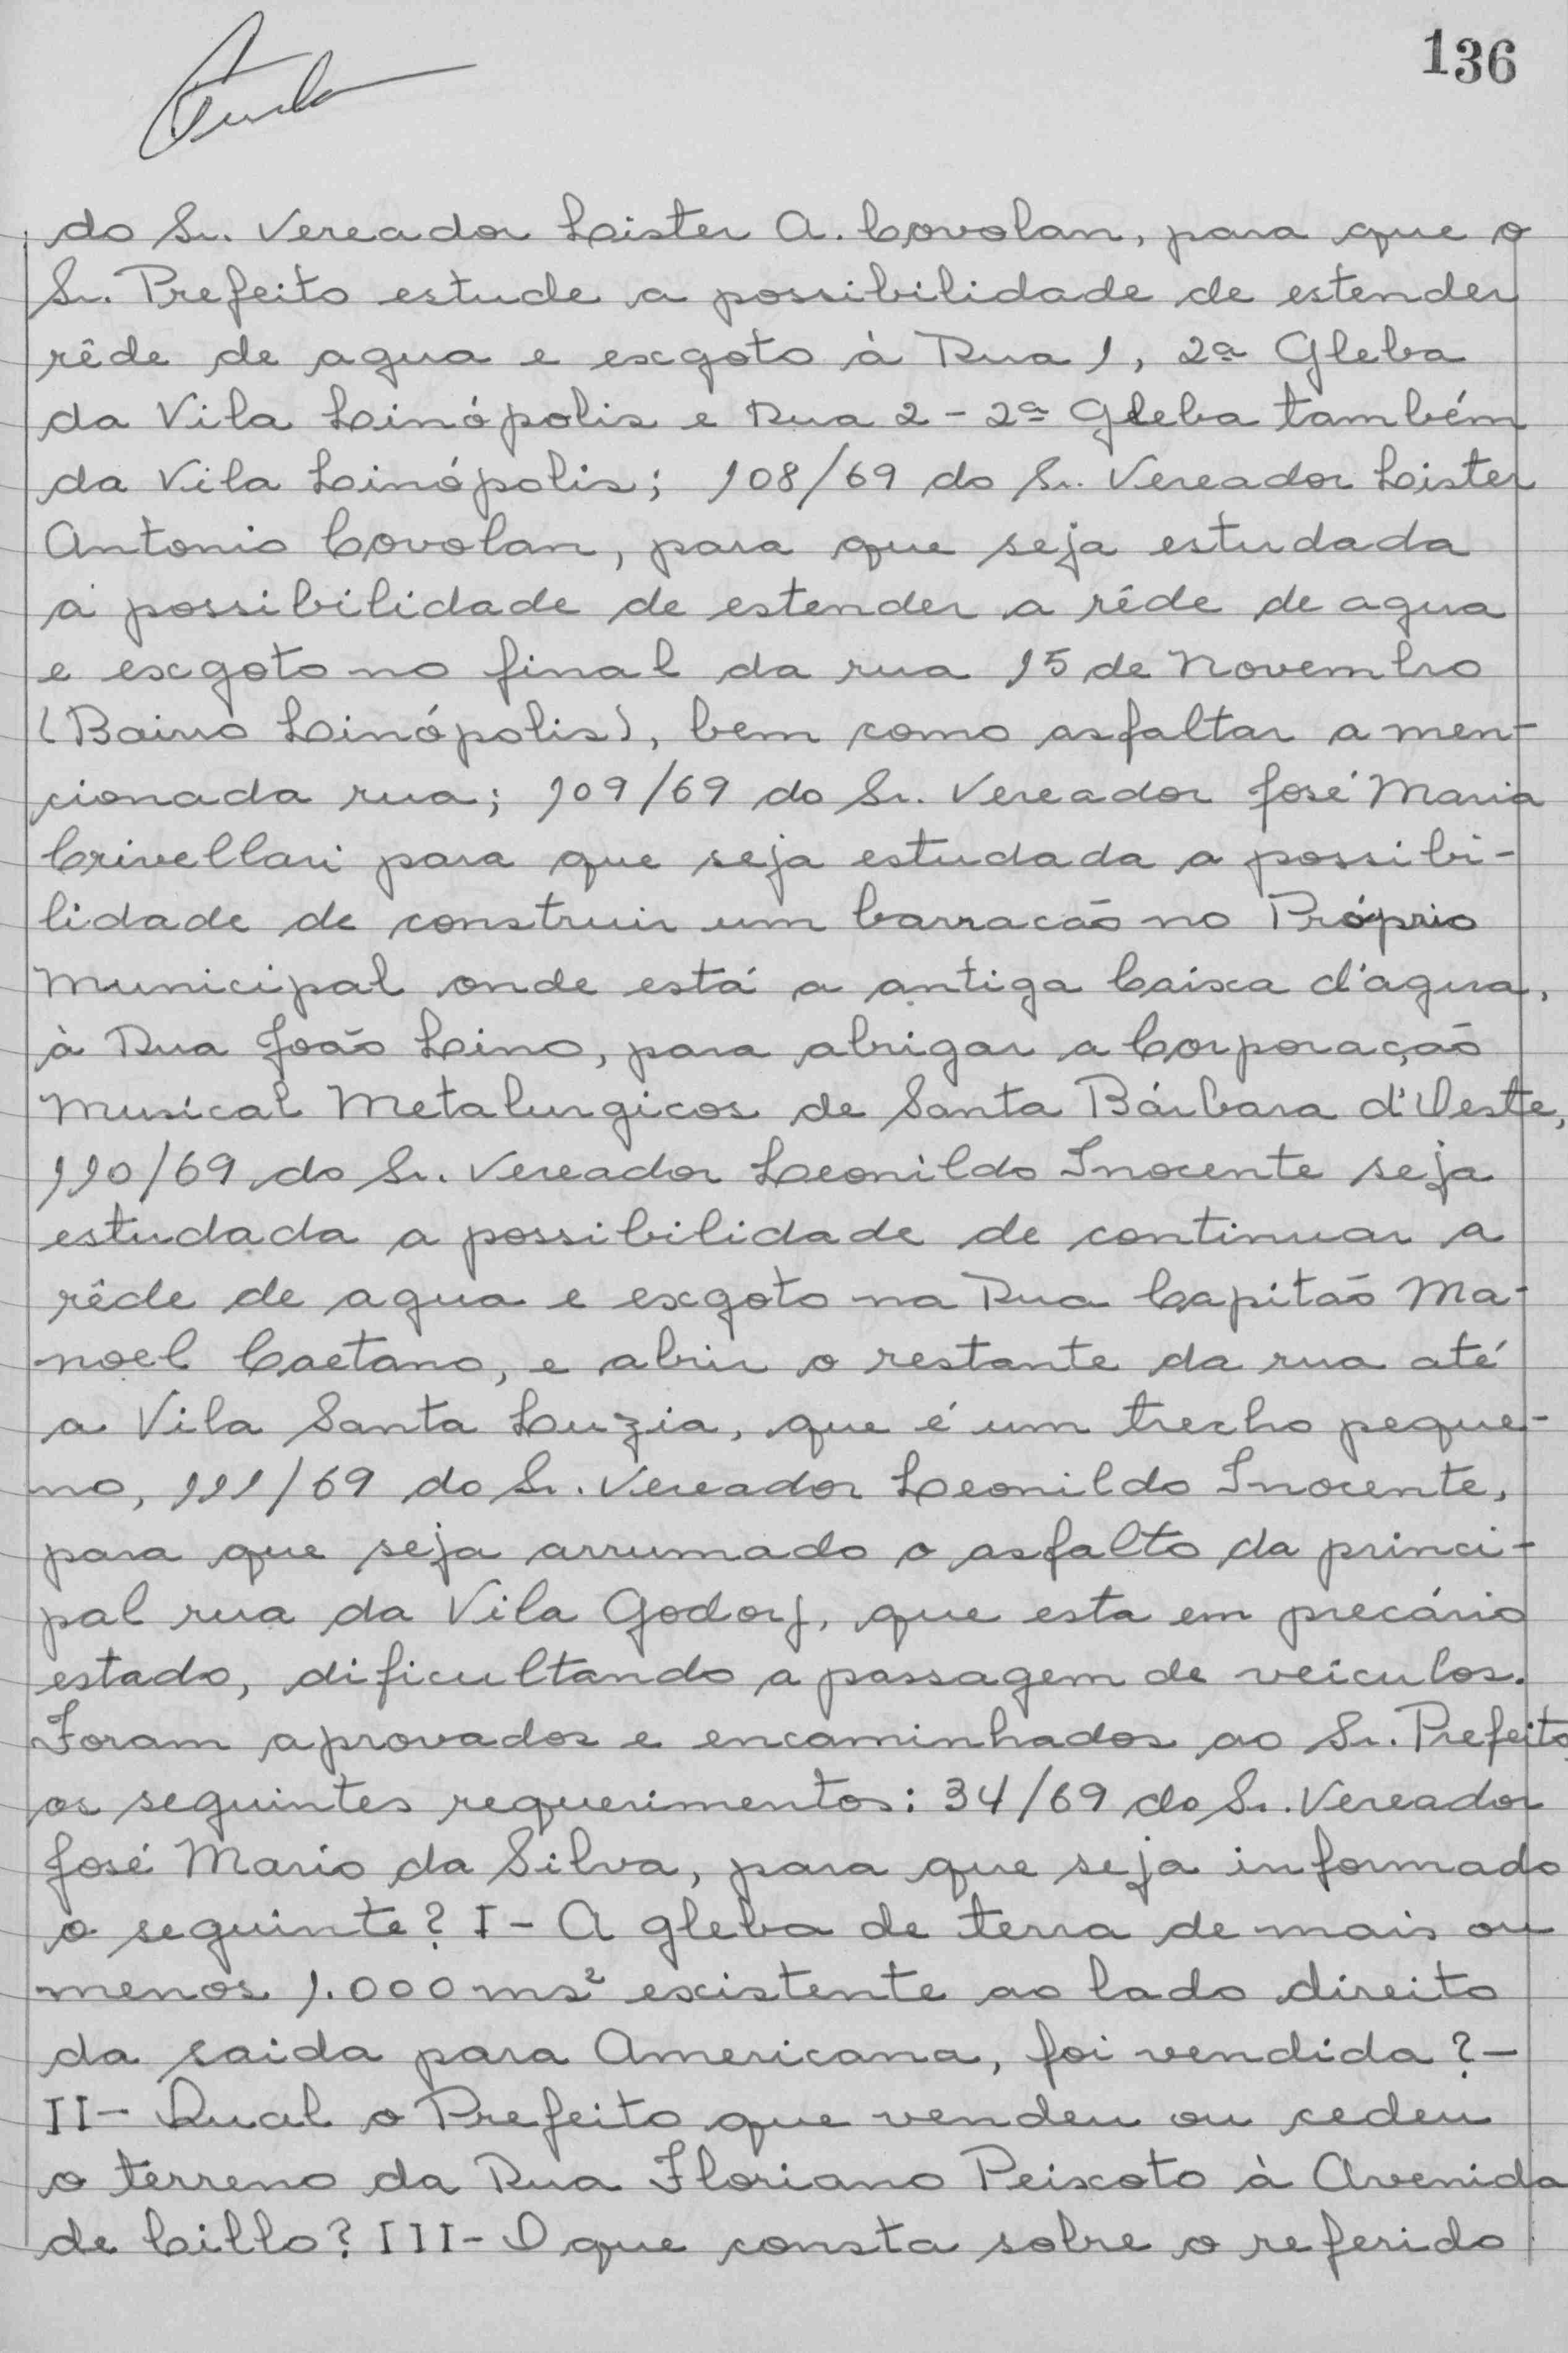 136
do Sr. Vereador Lister A. Covolan, para que o
Sr. Prefeito estude a possibilidade de estender
rêde de agua e exgoto à Rua 1, 2ª Gleba
da Vila Linópolis e Rua 2 - 2ª Gleba também
da Vila Linópolis; 108/69 do Sr. Vereador Lister
Antonio Covolan, para que seja estudada
a possibilidade de estender a rêde de agua
e exgoto no final da rua 15 de Novembro
(Bairro Linópolis), bem como asfaltar a men-
cionada rua; 109/69 do Sr. Vereador José Maria
Crivellari para que seja estudada a possibi-
lidade de construir um barracão no Próprio
Municipal onde está a antiga Caixa d'agua,
à Rua João Lino, para abrigar a Corporação
Musical Metalurgicos de Santa Bárbara d'Oeste,
110/69 do Sr. Vereador Leonildo Inocente seja
estudada a possibilidade de continuar a
rêde de agua e exgoto na Rua Capitão Ma-
noel Caetano, e abrir o restante da rua até
a Vila Santa Luzia, que é um trecho peque-
no, 111/69 do Sr. Vereador Leonildo Inocente,
para que seja arrumado o asfalto da princi-
pal rua da Vila Godoy, que esta em precário
estado, dificultando a passagem de veiculos.
Foram aprovados e encaminhados ao Sr. Prefeito
os seguintes requerimentos: 34/69 do Sr. Vereador
José Mario da Silva, para que seja informado
o seguinte? I - A gleba de terra de mais ou
menos 1.000 ms² existente ao lado direito
da saida para Americana, foi vendida? -
II - Qual o Prefeito que vendeu ou cedeu
o terreno da Rua Floriano Peixoto à Avenida
de Cillo? III - O que consta sobre o referido